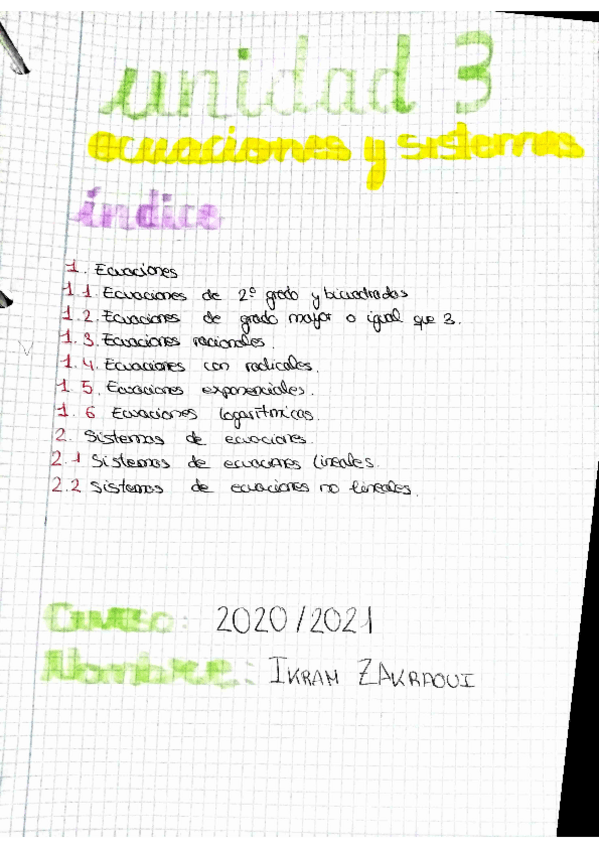 unidad 3
ecuaciones y sistemas
índice
1. Ecuaciones
1.1. Ecuaciones de 2º grado y bicuadradas
1.2. Ecuaciones de grado mayor o igual que 3.
1.3. Ecuaciones racionales.
1.4. Ecuaciones con radicales.
1.5. Ecuaciones exponenciales.
1.6 Ecuaciones logarítmicas.
2. Sistemas de ecuaciones.
2.1 Sistemas de ecuaciones lineales.
2.2 Sistemas de ecuaciones no lineales.
Curso: 2020/2021
Nombre: IKRAM ZAKRAOUI